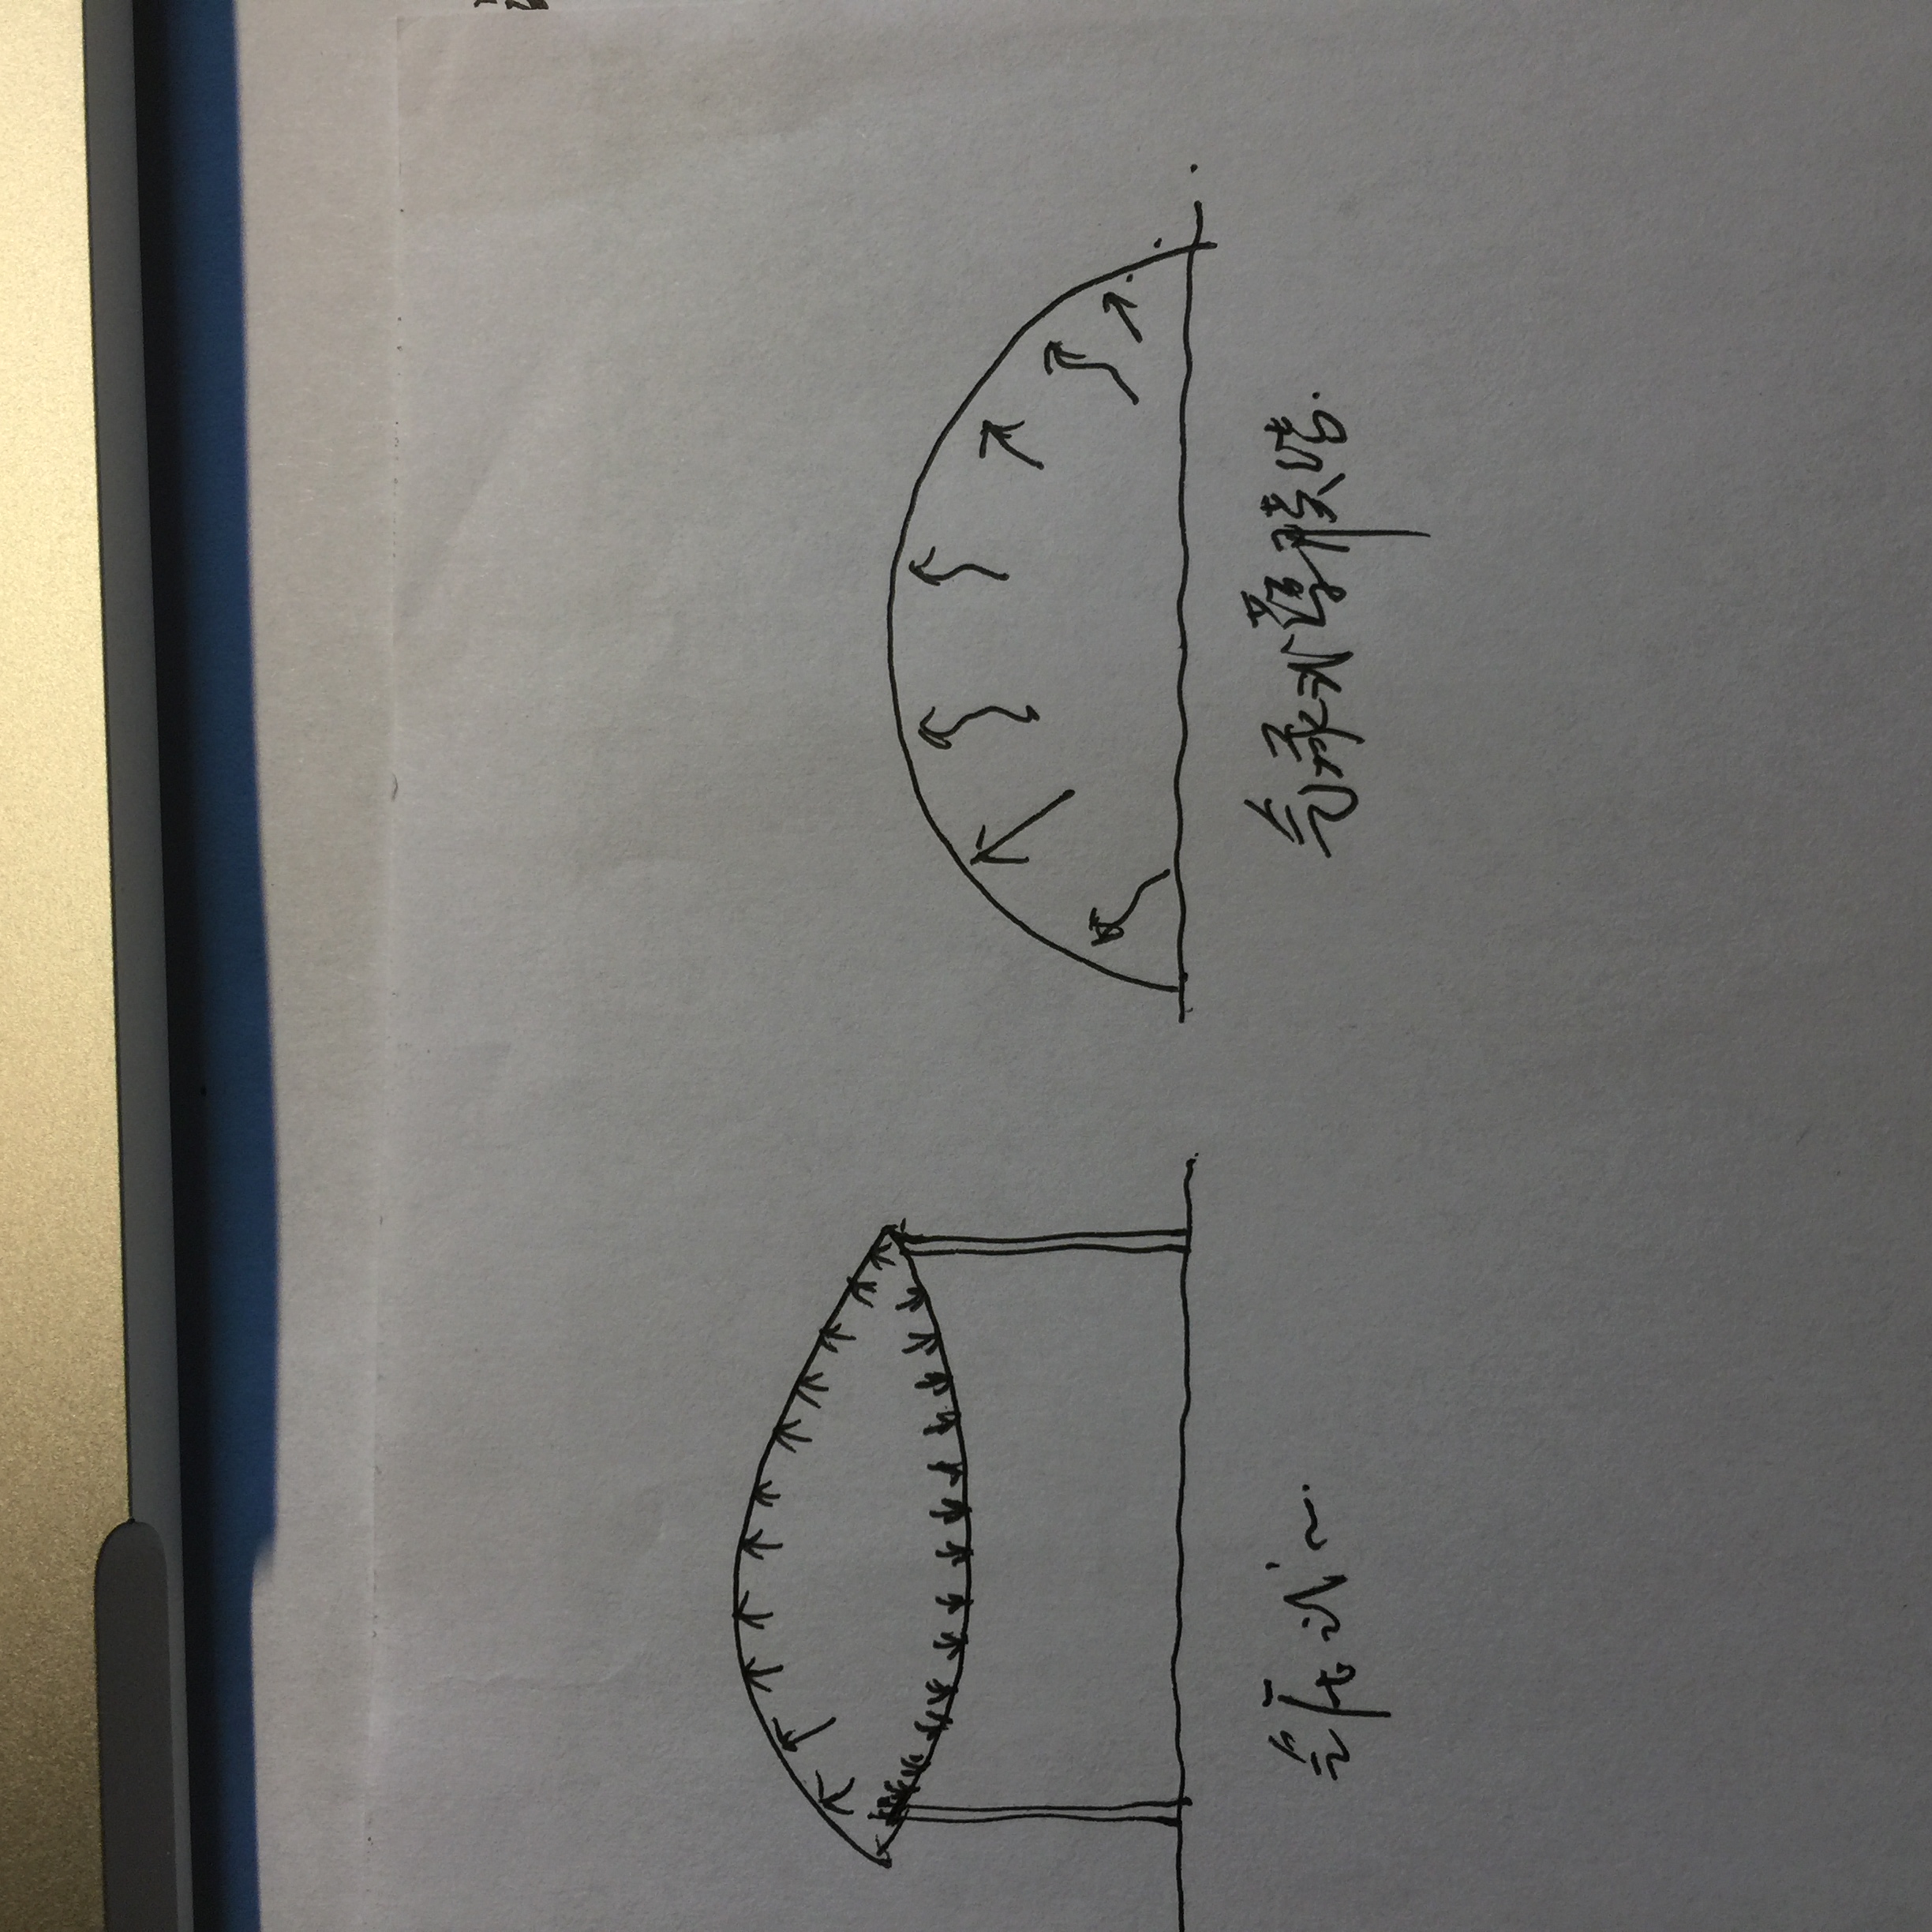 气压式~.
气承式薄膜结.